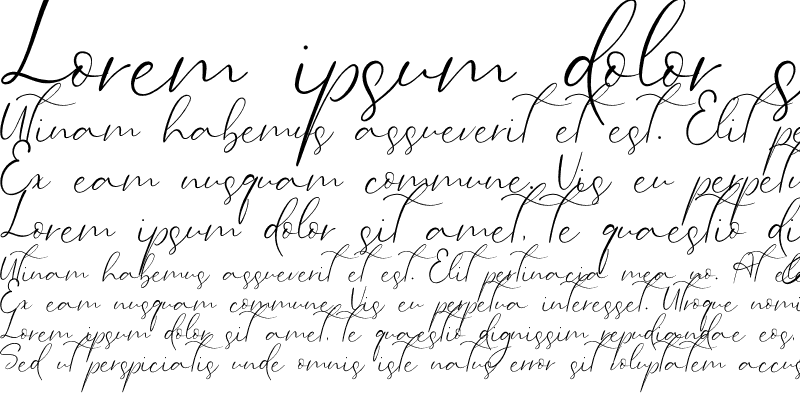 Lorem ipsum dolor s
Utinam habemus assueverit et est. Elit pe
Ex eam nusquam commune. Vis eu perpetu
Lorem ipsum dolor sit amet, te quaestio di
Utinam habemus assueverit et est. Elit pertinacia mea no. At elo
Ex eam nusquam commune. Vis eu perpetua interesset. Utroque nomi
Lorem ipsum dolor sit amet, te quaestio dignissim repudiandae eos.
Sed ut perspiciatis unde omnis iste natus error sit voluptatem accus